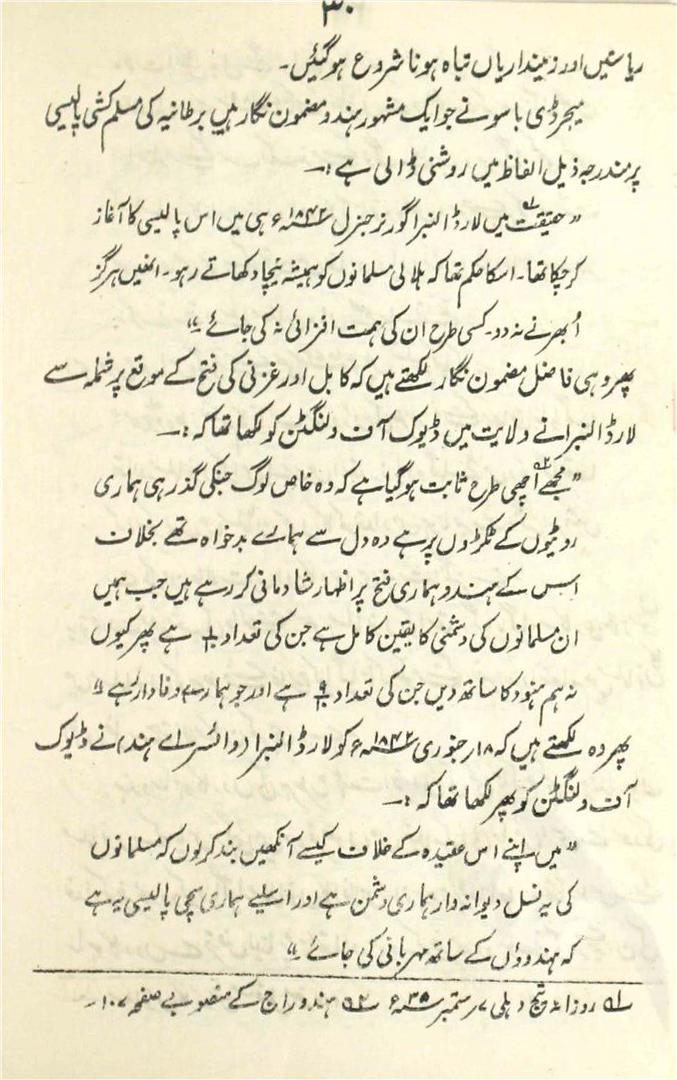 ۳۰
ریاستیں اور زمینداریاں تباہ ہونا شروع ہوگئیں۔
میجر ڈی باسو نے جو ایک مشہور ہندو مضمون نگار ہیں برطانیہ کی مسلم کشی پالیسی
پر مندرجہ ذیل الفاظ میں روشنی ڈالی ہے :—
"حقیقت میں لارڈ النبرا گورنر جنرل ۱۸۴۲ء ہی میں اس پالیسی کا آغاز
کر چکا تھا۔ اسکا حکم تھا کہ ہلالی مسلمانوں کو ہمیشہ نیچا دکھاتے رہو۔ انھیں ہرگز
اُبھرنے نہ دو۔ کسی طرح ان کی ہمت افزائی نہ کی جائے۔"
پھر وہی فاضل مضمون نگار لکھتے ہیں کہ کابل اور غزنی کی فتح کے موقع پر شملہ سے
لارڈ النبرا نے ولایت میں ڈیوک آف ولنگٹن کو لکھا تھا کہ :—
"مجھے اچھی طرح ثابت ہوگیا ہے کہ وہ خاص لوگ جنکی گذر ہی ہماری
روٹیوں کے ٹکڑوں پر ہے وہ دل سے ہمارے بدخواہ تھے بخلاف
اس کے ہندو ہماری فتح پر اظہار شادمانی کر رہے ہیں جب ہمیں
ان مسلمانوں کی دشمنی کا یقین کامل ہے جن کی تعداد ۱/۱۰ ہے پھر کیوں
نہ ہم ہنود کا ساتھ دیں جن کی تعداد ۹/۱۰ ہے اور جو ہمارے وفادار ہے"
پھر وہ لکھتے ہیں کہ ۱۸ر جنوری ۱۸۴۳ء کو لارڈ النبرا (وائسراے ہند) نے ڈیوک
آف ولنگٹن کو پھر لکھا تھا کہ :—
"میں اپنے اس عقیدہ کے خلاف کیسے آنکھیں بند کرلوں کہ مسلمانوں
کی یہ نسل دیوانہ وار ہماری دشمن ہے اور اسلیے ہماری سچی پالیسی یہ ہے
کہ ہندوؤں کے ساتھ مہربانی کی جائے۔"
۱؎ روزانہ تیج دہلی ۷ر ستمبر ۳۵ء ۲؎ ہندو راج کے منصوبے صفحہ ۱۰۷۔